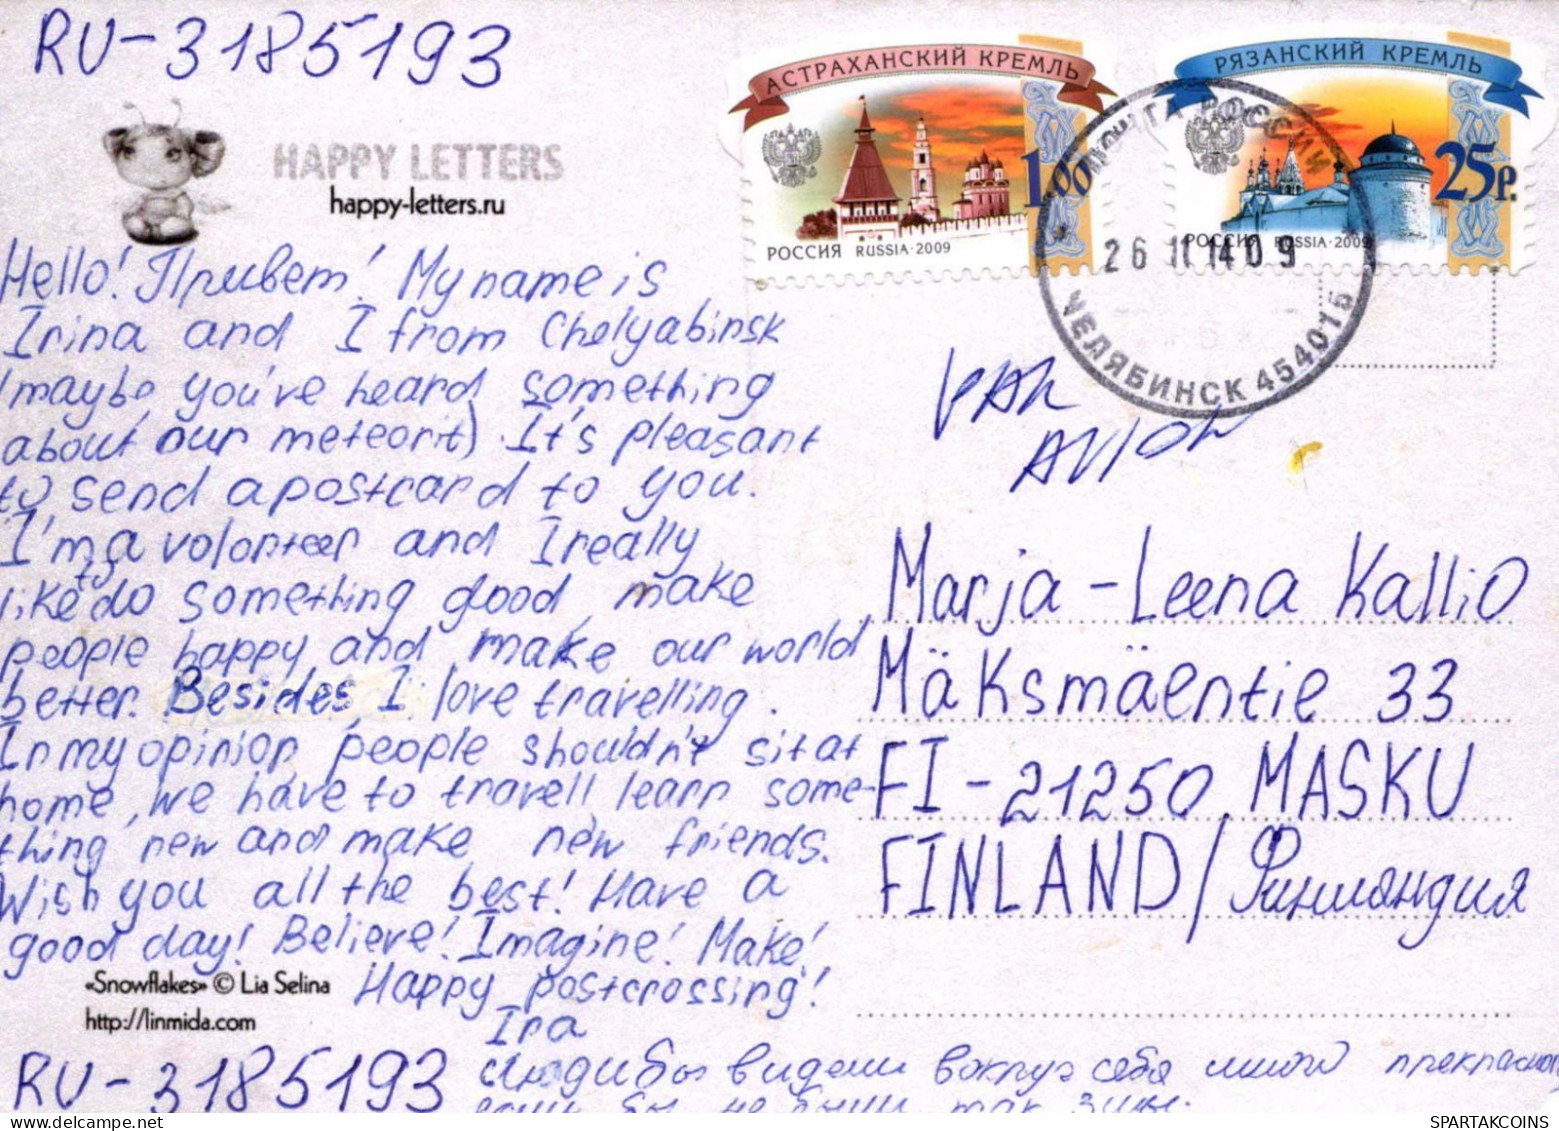 RU-3185193
HAPPY LETTERS
happy-letters.ru
АСТРАХАНСКИЙ КРЕМЛЬ
1.00
РОССИЯ RUSSIA·2009
РЯЗАНСКИЙ КРЕМЛЬ
25р.
РОССИЯ RUSSIA·2009
ПОЧТА РОССИИ
26 11 14 09
ЧЕЛЯБИНСК 454015
Hello! Привет! My name is
Irina and I from Chelyabinsk
(maybe you've heard something
about our meteorit) It's pleasant
to send a postcard to you.
I'm a volonteer and I really
like to do something good, make
people happy and make our world
better. Besides I love travelling.
In my opinion people shouldn't sit at
home, we have to travell learn some-
thing new and make new friends.
Wish you all the best! Have a
good day! Believe! Imagine! Make!
Happy postcrossing!
Ira
PAR
AVION
Marja-Leena Kallio
Mäksmäentie 33
FI-21250 MASKU
FINLAND/Финляндия
«Snowflakes» © Lia Selina
http://linmida.com
RU-3185193
Люди бы видели вокруг себя много прекрасного,
если бы не были так злы.
SPARTAKCOINS